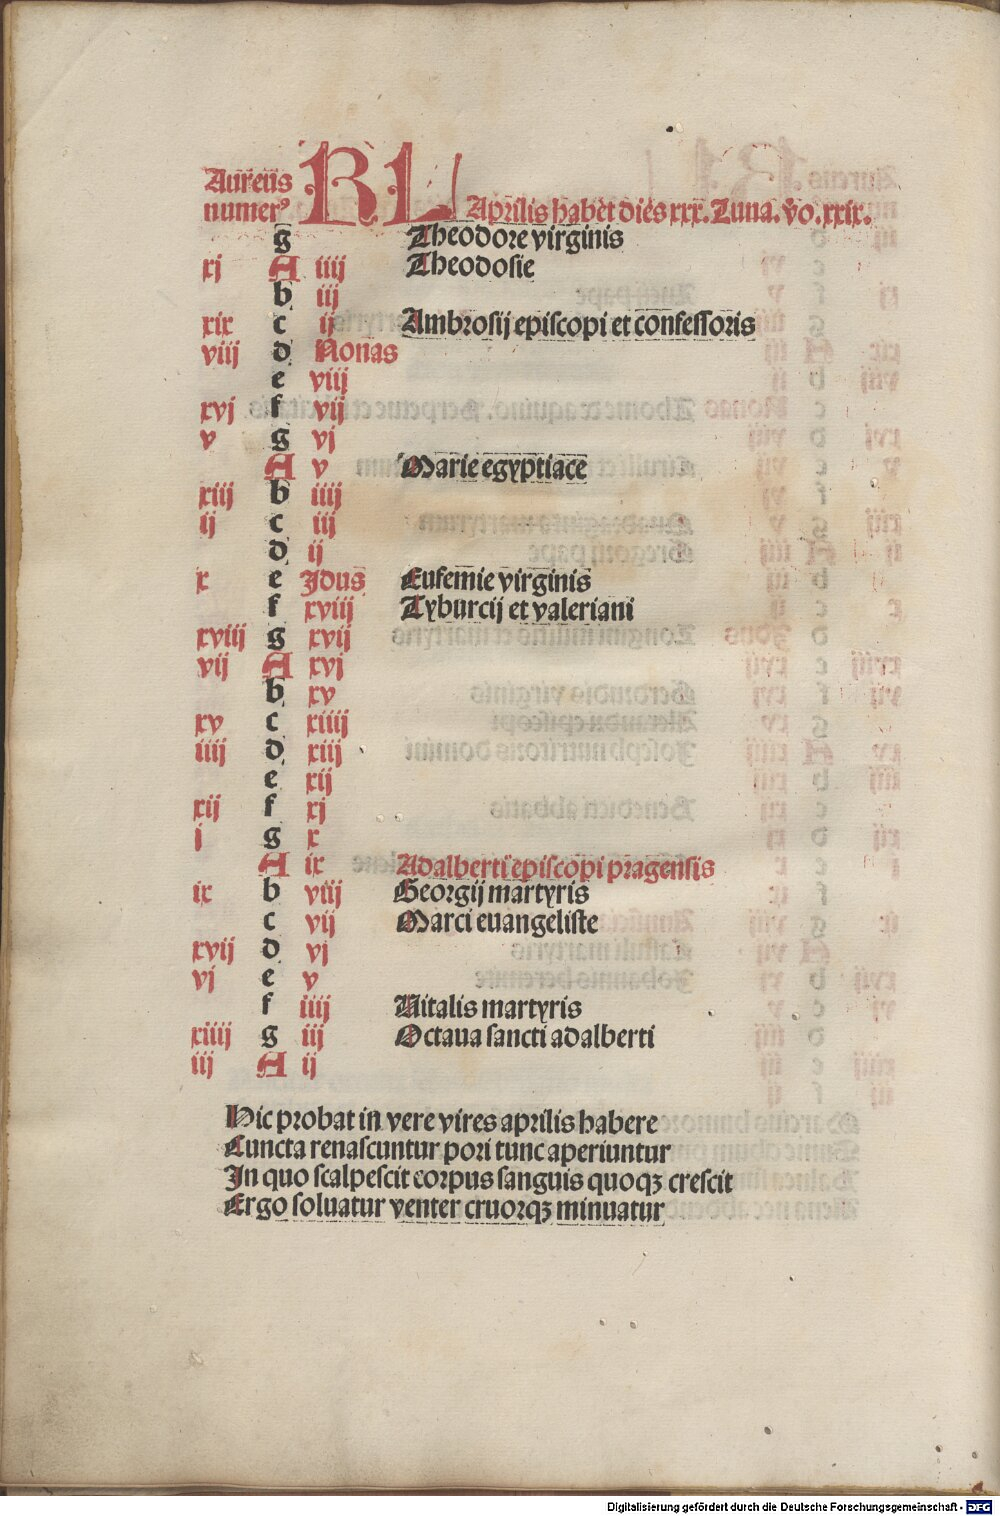 Aureus
numer⁹ KL Aprilis habet dies xxx. Luna. vͦo. xxix.
g Theodore virginis
xj A iiij Theodosie
b iij
xix c ij Ambrosij episcopi et confessoris
viij d Nonas
e viij
xvj f vij
v g vj
A v Marie egyptiace
xiij b iiij
ij c iij
d ij
x e Idus Eufemie virginis
f xviij Tyburcij et valeriani
xviij g xvij
vij A xvj
b xv
xv c xiiij
iiij d xiij
e xij
xij f xj
j g x
A ix Adalberti episcopi pragensis
ix b viij Georgij martyris
c vij Marci euangeliste
xvij d vj
vj e v
f iiij Uitalis martyris
xiiij g iij Octaua sancti adalberti
iij A ij
Hic probat in vere vires aprilis habere
Cuncta renascuntur pori tunc aperiuntur
In quo scalpescit corpus sanguis quoqꝫ crescit
Ergo soluatur venter cruorqꝫ minuatur
Digitalisierung gefördert durch die Deutsche Forschungsgemeinschaft - DFG